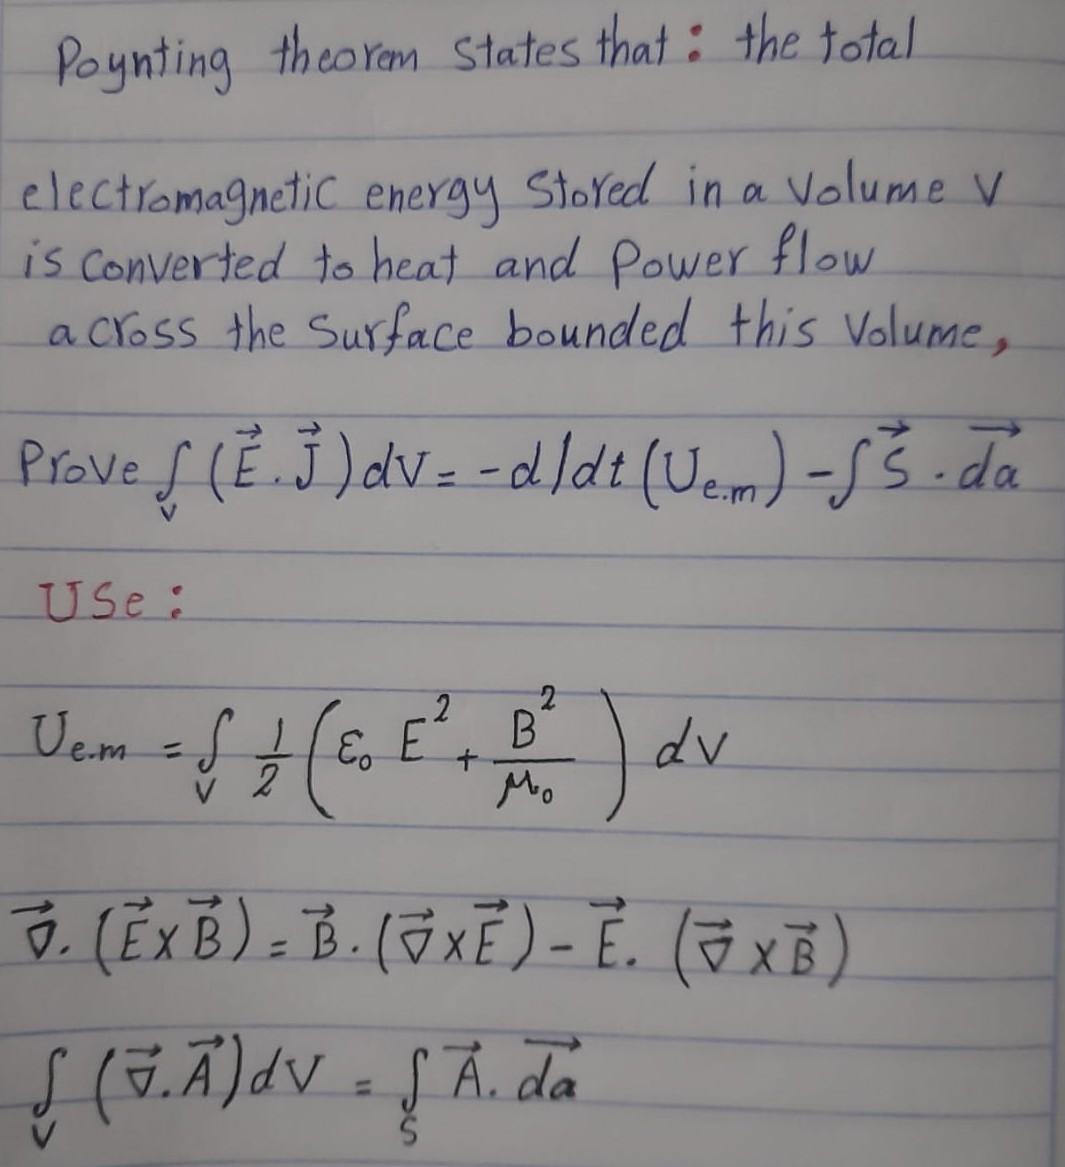 Poynting theorem states that : the total
electromagnetic energy stored in a volume V
is converted to heat and power flow
across the surface bounded this volume,
Prove ∫_V (E⃗ . J⃗) dV = -d/dt (U_e.m) - ∫ S⃗ . da⃗
Use :
U_e.m = ∫_V 1/2 (ε₀ E² + B²/μ₀) dV
∇⃗ . (E⃗ x B⃗) = B⃗ . (∇⃗ x E⃗) - E⃗ . (∇⃗ x B⃗)
∫_V (∇⃗ . A⃗) dV = ∫_S A⃗ . da⃗